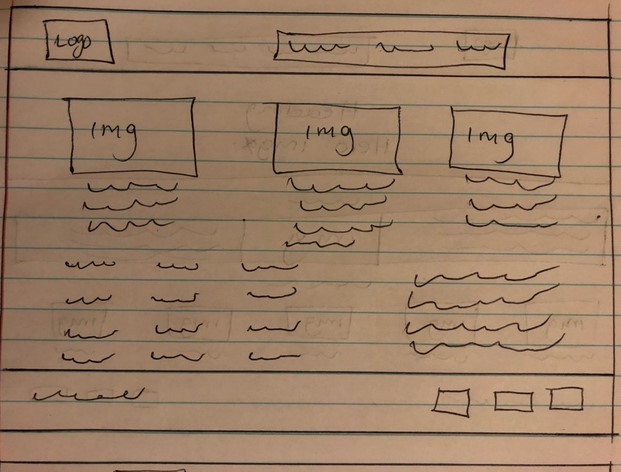 Logo
img img img